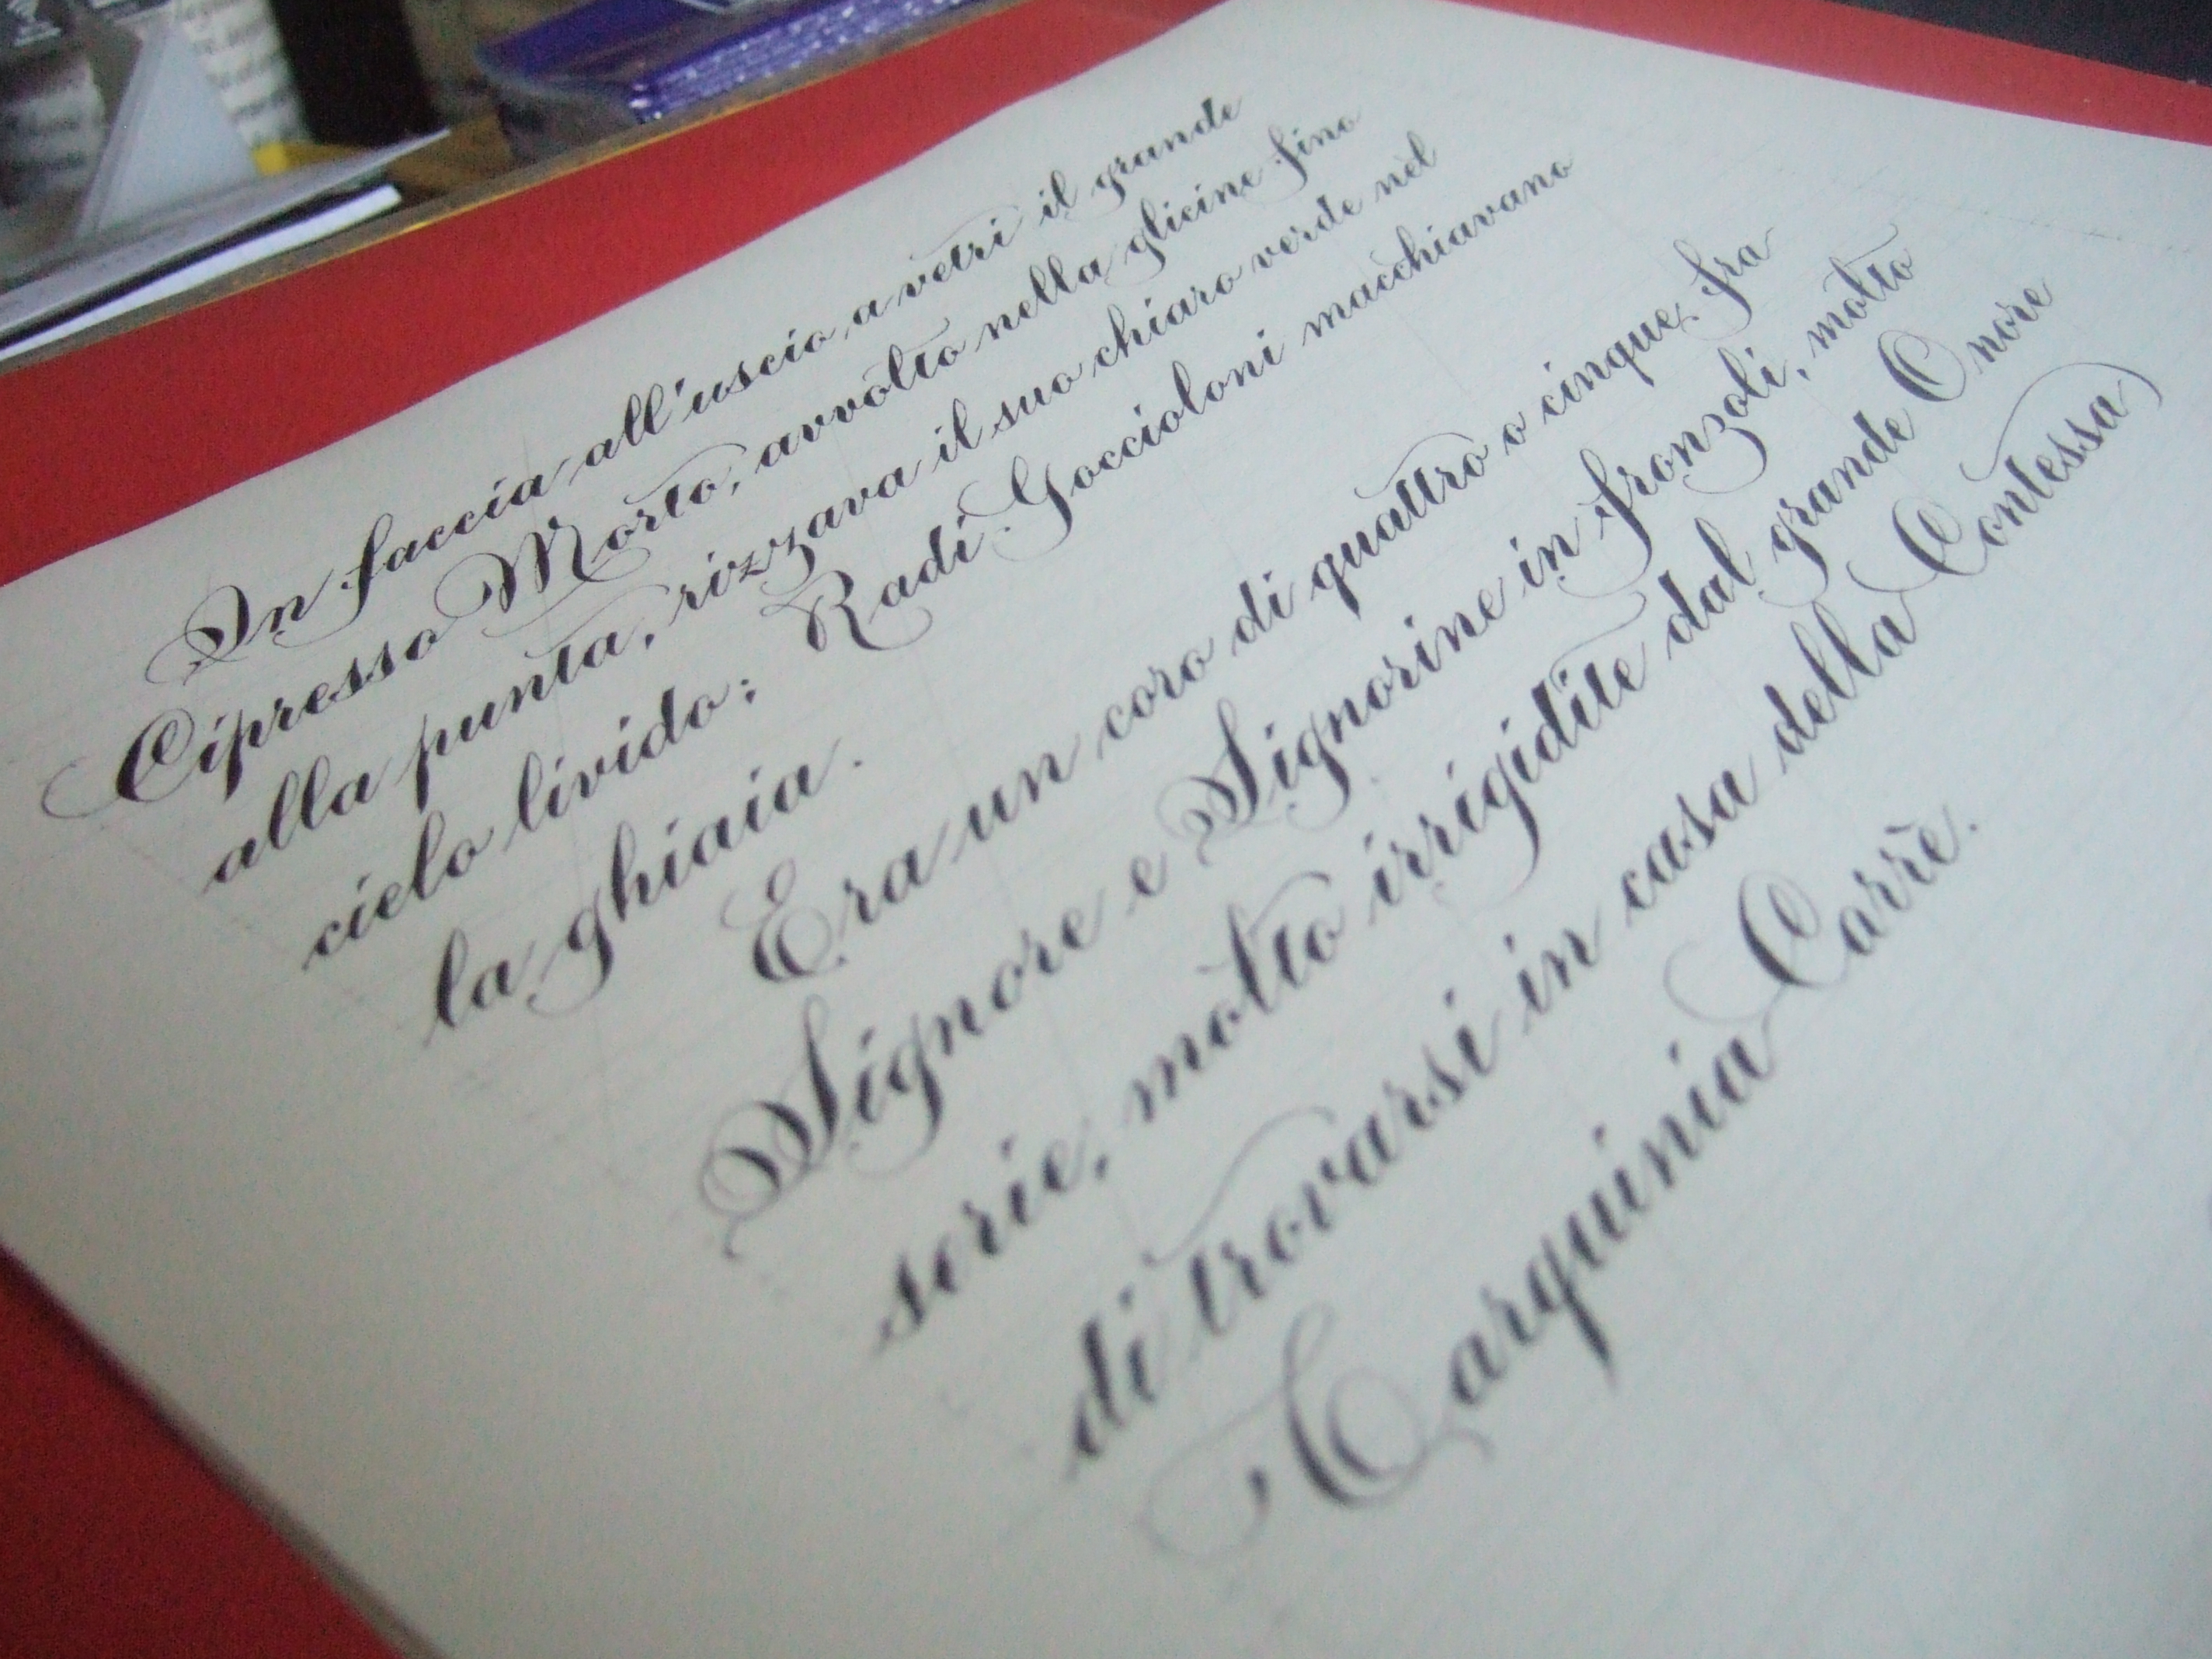 In faccia all'uscio a vetri il grande
Cipresso Morto, avvolto nella glicine fino
alla punta, rizzava il suo chiaro verde nel
cielo livido; Radi Goccioloni macchiavano
la ghiaia.
Era un coro di quattro o cinque fra
Signore e Signorine in fronzoli, molto
serie, molto irrigidite dal grande Onore
di trovarsi in casa della Contessa
Tarquinia Carrè.